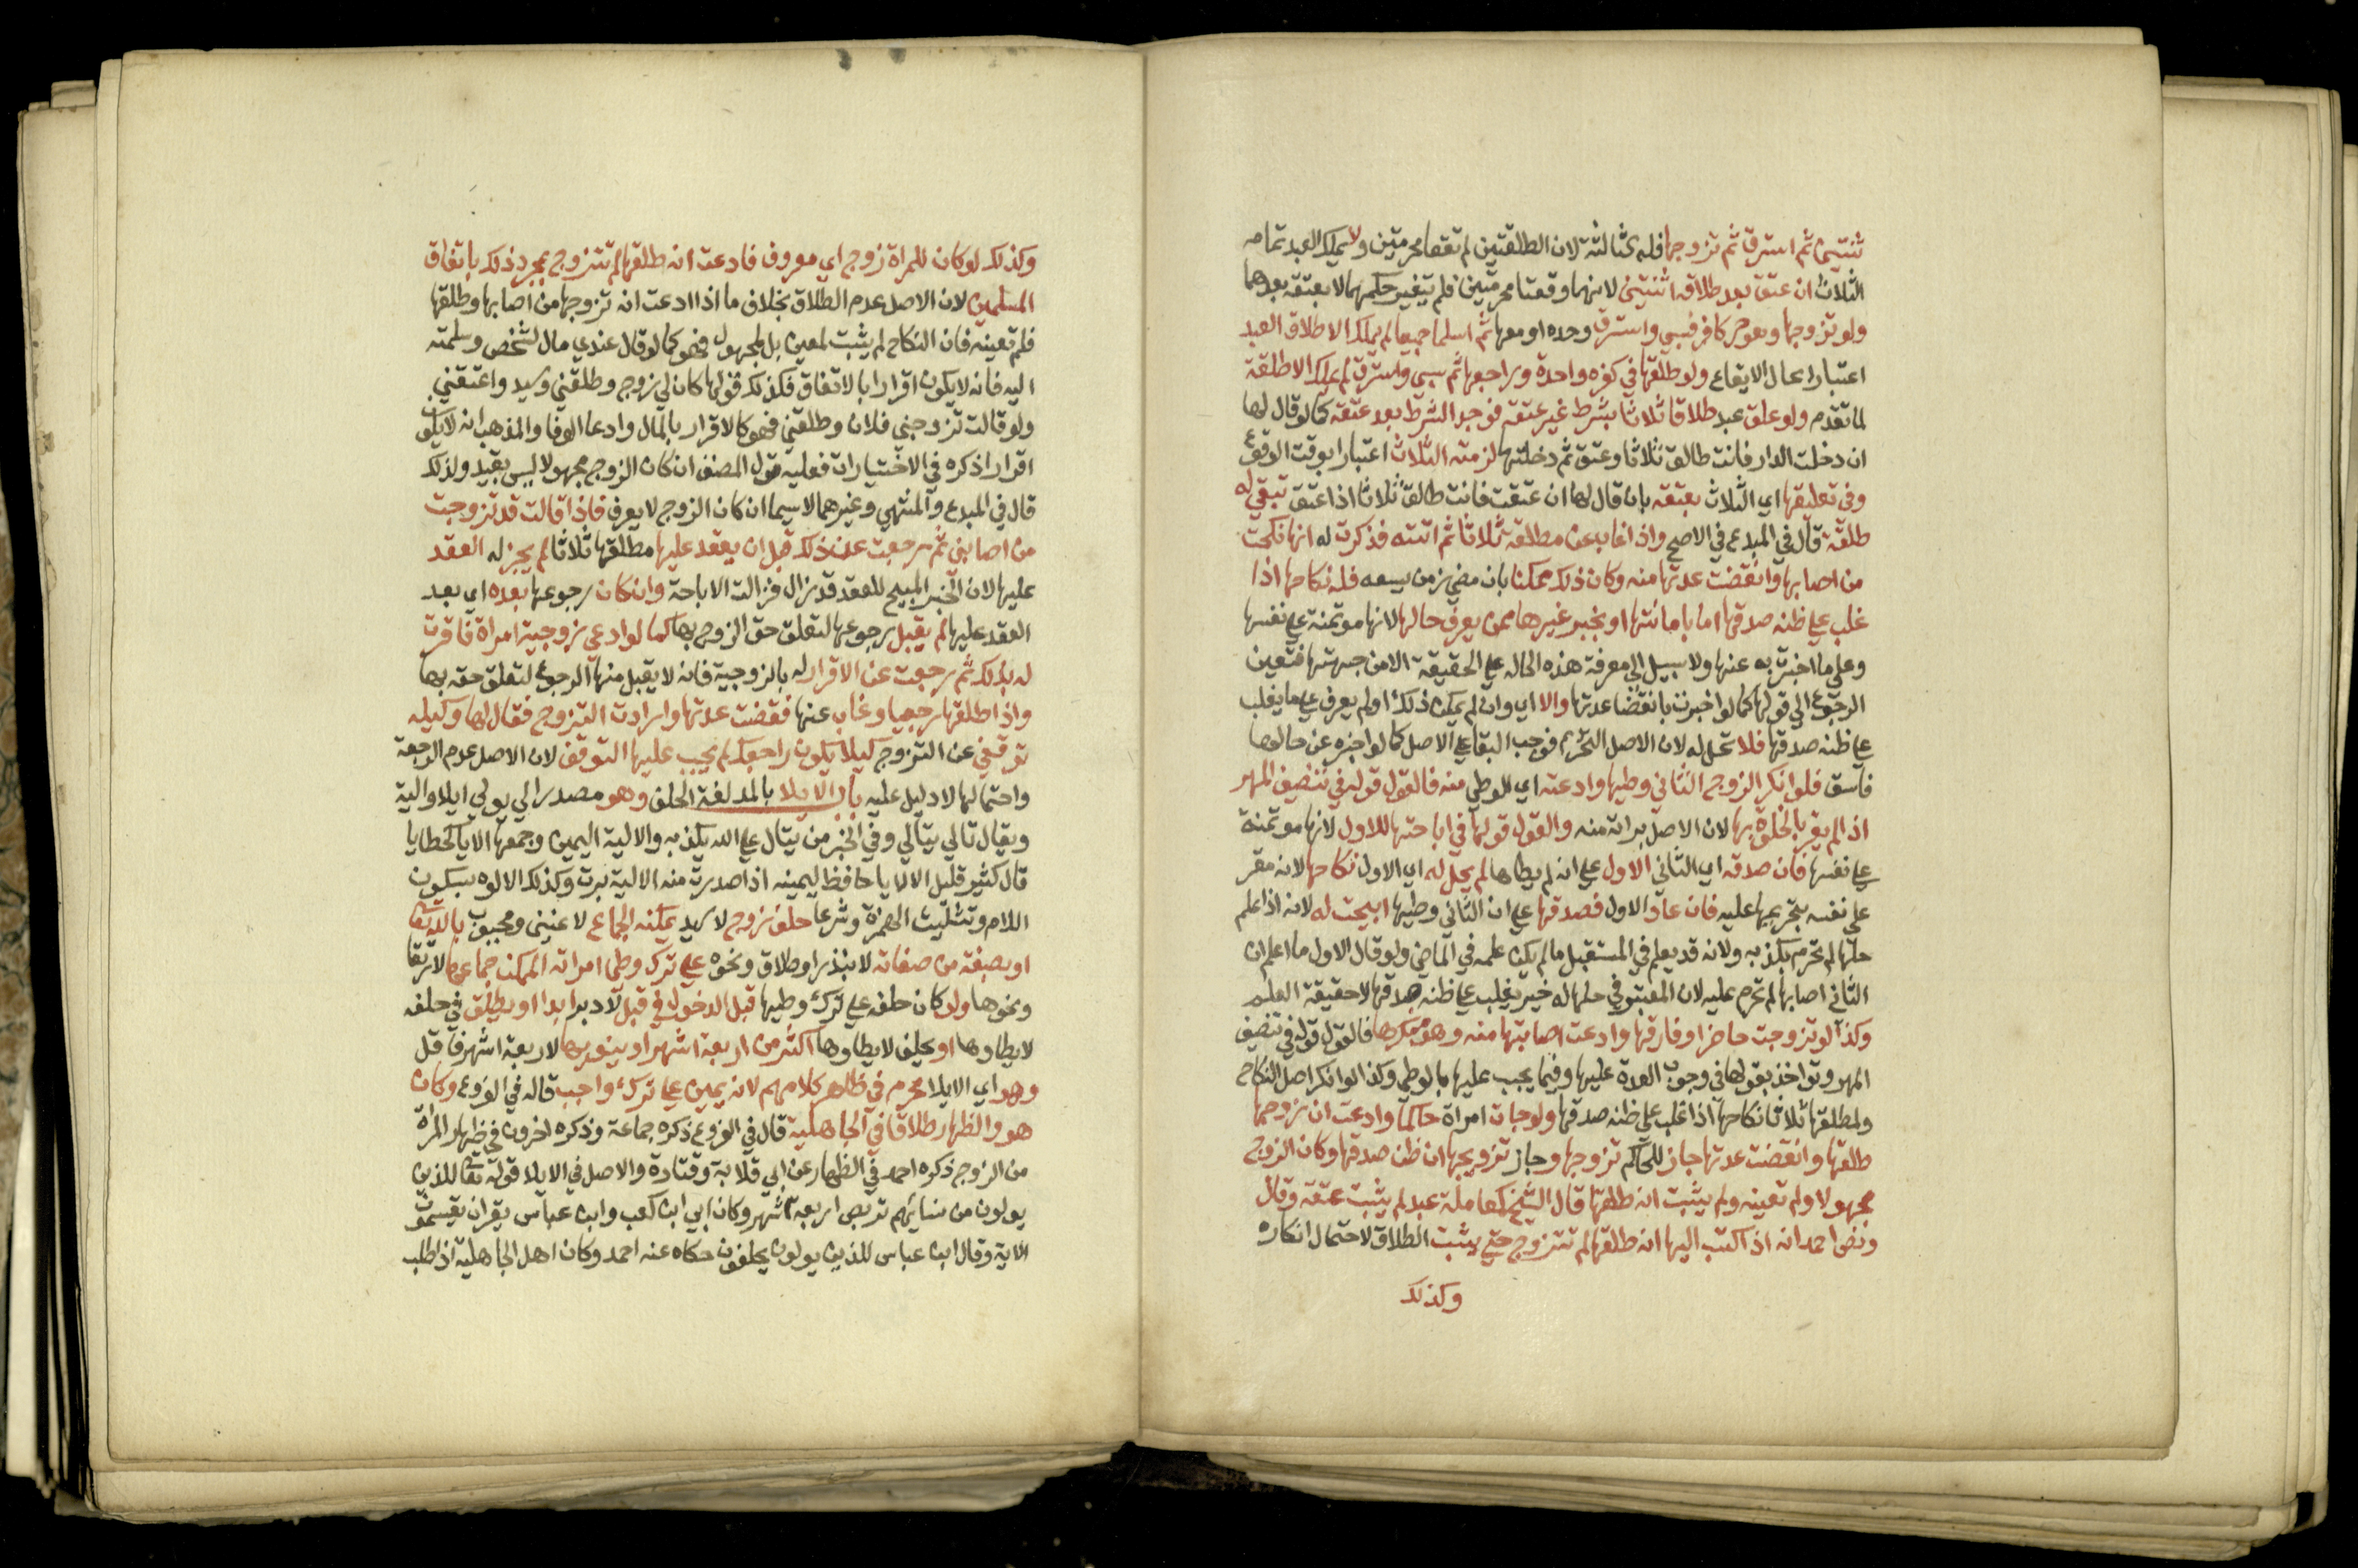 ثنتين ثم استرق ثم تزوجها فله ثالثة لان الطلقتين لم تقعا محرمتين ولا يملك العبد تمامه
الثلاث ان عتق بعد طلاقه اثنتين لانهما وقعتا محرمتين فلم يتغير حكمهما لا بعتقه بعدهما
ولو تزوجها وهو حر كافر فسبي واسترق وحده او معها ثم اسلما جميعا لم يملك الا طلاق العبد
اعتبارا بحال الايقاع ولو طلقها في كفره واحدة وراجعها ثم سبي واسترق لم يملك الا طلقة
لما تقدم ولو علق عبد طلاقا ثلاثا بشرط غير عتقه فوجد الشرط بعد عتقه كما لو قال لها
ان دخلت الدار فانت طالق ثلاثا وعتق ثم دخلتها لزمته الثلاث اعتبارا بوقت الوقوع
وفي تعليقها اي الثلاث بعتقه بان قال لها ان عتقت فانت طالق ثلاثا اذا عتق تبقى له
طلقة قال في المبدع في الاصح واذا غاب عن مطلقة ثلاثا ثم اتته فذكرت له انها نكحت
من اصابها وانقضت عدتها منه وكان ذلك ممكنا بان مضى زمن يسعه فله نكاحها اذا
غلب على ظنه صدقها اما بامانتها او بخبر غيرها ممن يعرف حالها لانها موتمنة على نفسها
وعلى ما اخبرت به عنها ولا سبيل الى معرفة هذه الحال على الحقيقة الا من جهتها فتعين
الرجوع الى قولها كما لو اخبرت بانقضا عدتها والا اي وان لم يمكن ذلك او لم يعرف على ما يغلب
على ظنه صدقها فلا تحل له لان الاصل التحريم فوجب البقا على الاصل كما لو اخبره عن حالها
فاسق فلو انكر الزوج الثاني وطيها وادعته اي الوطي منه فالقول قوله في تنصيف المهر
اذا لم يقر بالخلوة بها لان الاصل براته منه والقول قولها في اباحتها للاول لانها موتمنة
على نفسها فان صدقه اي الثاني الاول على انه لم يطاها لم يحل له اي الاول نكاحها لانه مقر
على نفسه بتحريمها عليه فان عاد الاول فصدقها على ان الثاني وطيها ابيحت له لانه اذا علم
حلها لم تحرم بكذبه ولانه قد يعلم في المستقبل ما لم يكن علمه في الماضي ولو قال الاول ما اعلم ان
الثاني اصابها لم تحرم عليه لان المعتبر في حلها له خبر يغلب على ظنه صدقها لا حقيقة العلم
وكذا لو تزوجت حاضرا وفارقها وادعت اصابتها منه وهو منكرها فالقول قوله في تنصيف
المهر وتواخذ بقولها في وجوب العدة عليها وفيما يجب عليها بالوطي وكذا لو انكر اصل النكاح
ولمطلقها ثلاثا نكاحها اذا غلب على ظنه صدقها ولو جات امراة حاكما وادعت ان زوجها
طلقها وانقضت عدتها جاز للحاكم تزوجها وجاز تزويجها ان ظن صدقها وكان الزوج
مجهولا ولم تعينه ولم يثبت انه طلقها قال الشيخ كمعاملة عبد لم يثبت عتقه وقال
ونص احمد انه اذا كتب اليها انه طلقها لم تتزوج حتى يثبت الطلاق لاحتمال انكاره
وكذلك
وكذلك لو كان للمراة زوج اي معروف فادعت انه طلقها لم تتزوج بمجرد ذلك باتفاق
المسلمين لان الاصل عدم الطلاق بخلاف ما اذا ادعت انه تزوجها من اصابها وطلقها
فلم تعينه فان النكاح لم يثبت لمعين بل لمجهول فهو كما لو قال عندي مال لشخص وسلمته
اليه فانه لا يكون اقرارا بالاتفاق فكذلك قولها كان لي زوج وطلقني وسيد واعتقني
ولو قالت تزوجني فلان وطلقني فهو كالاقرار بالمال وادعا الوفا والمذهب انه لا يكون
اقرارا ذكره في الاختيارات فعليه قول المصنف ان كان الزوج مجهولا ليس بقيد ولذلك
قال في المبدع والمنتهى وغيرهما لا سيما ان كان الزوج لا يعرف فاذا قالت قد تزوجت
من اصابني ثم رجعت عن ذلك قبل ان يعقد عليها مطلقها ثلاثا لم يجز له العقد
عليها لان الخبر المبيح للعقد قد زال فزالت الاباحة وان كان رجوعها بعده اي بعد
العقد عليها لم يقبل رجوعها لتعلق حق الزوج بها كما لو ادعى زوجية امراة فاقرت
له بذلك ثم رجعت عن الاقرار له بالزوجية فانه لا يقبل منها الرجوع لتعلق حقه بها
واذا طلقها رجعيا وغاب عنها فقضت عدتها وارادت التزوج فقال لها وكيله
توقفي عن التزوج كيلا يكون راجعك لم يجب عليها التوقف لان الاصل عدم الرجعة
واحتمالها لا دليل عليه باب الايلا بالمد لغة الحلف وهو مصدر الى يولي ايلا والية
ويقال تالى يتالى وفي الخبر من يتال على الله يكذبه والالية اليمين وجمعها الايا كخطايا
قال كثير قليل الالايا حافظ ليمينه اذا صدرت منه الالية برت وكذلك الالوه بسكون
اللام وتثليث الهمزة وشرعا حلف زوج لا سيد يمكنه الجماع لا عنين ومجبوب بالله تعالى
او بصفة من صفاته لا بنذر او طلاق ونحوه على ترك وطي امراته الممكن جماعها لا رتقا
ونحوها ولو كان حلفه على ترك وطيها قبل الدخول في قبل لا دبر ابدا او يطلق في حلفه
لا يطاوها او يحلف لا يطاوها اكثر من اربعة اشهر او ينويها لا اربعة اشهر فاقل
وهو اي الايلا محرم في ظاهر كلامهم لانه يمين على ترك واجب قاله في الفروع وكان
هو والظهار طلاقا في الجاهلية قال في الفروع ذكره جماعة وذكره اخرون في ظهار المراة
من الزوج ذكره احمد في الظهار عن ابي قلابة وقتادة والاصل في الايلا قوله تعالى للذين
يولون من نسائهم تربص اربعة اشهر وكان ابي ابن كعب وابن عباس يقران يقسمون
الاية وقال ابن عباس للذين يولون يحلفون حكاه عنه احمد وكان اهل الجاهلية اذا طلب